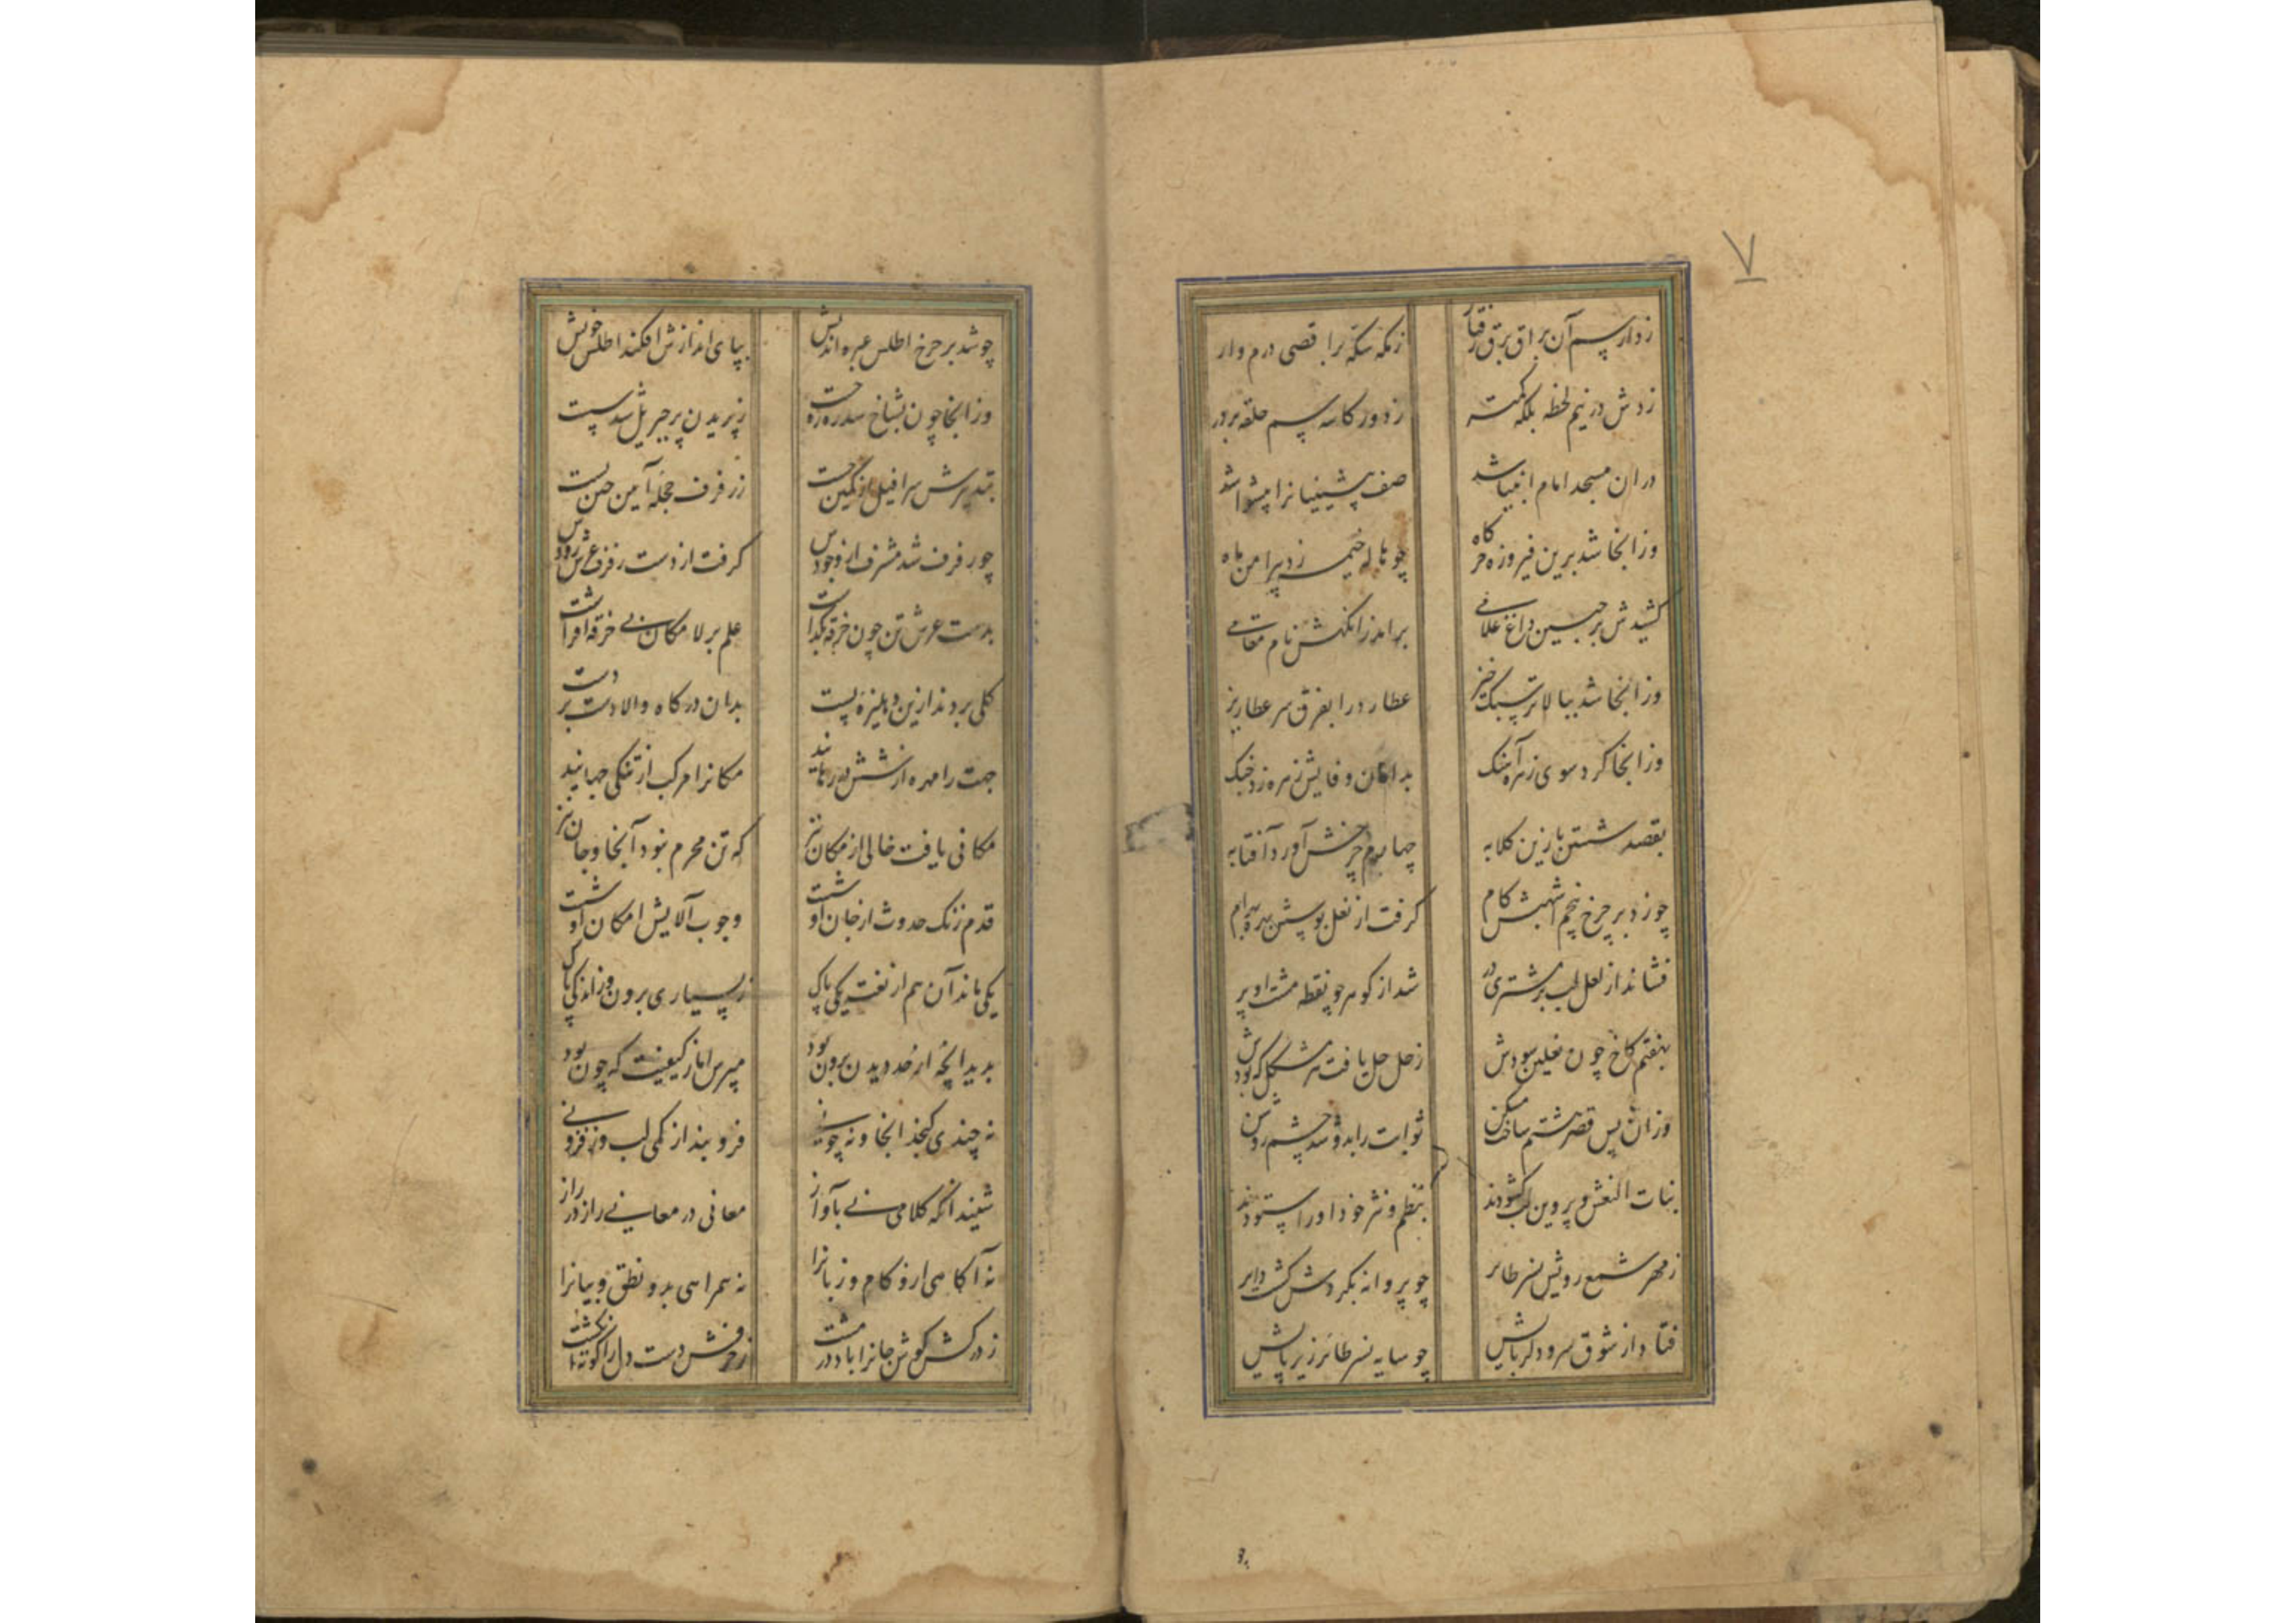 ۷
زد از سم آن براق برق رفتار ز مکه سکه بر اقصی درم وار
زدش در نیم لحظه بلکه کمتر ز دور کاسه سم حلقه بر در
در ان مسجد امام انبیا شد صف پیشینیانرا پیشوا شد
وز انجا شد برین فیروزه خرگاه چو هاله خیمه زد پیرامن ماه
کشیدش بر جبین داغ غلامی بر امد زانکهش نام تمامی
وز انجا شد ببالاتر سبک خیز عطارد را بفرق سر عطاریز
وز انجا کرد سوی زهره آهنک بدامان وفایش زهره زد چنک
بقصد شستن پا زین کلابه چهارم چرخش آورد آفتابه
چو زد بر چرخ پنجم اشهبش کام کرفت از نعل بوسش بهره بهرام
فشاند از لعل لب بر مشتری در شد از کوهر چو نقطه مشت او پر
بهفتم کاخ چون نعلین سودش زحل حل یافت هر مشکل که بودش
وزان پس قصر هشتم ساخت مسکن ثوابت را بدو شد چشم روشن
بنات النعش و پروین لب کشودند بنظم و نثر خود او را ستودند
ز مهر شمع رویش نسر طایر چو پروانه بکردش کشت دایر
فتاد از شوق سرو دلربایش چو سایه نسر طائر زیر پایش
چو
چو شد بر چرخ اطلس عبره اندیش بپای اندازش افکند اطلس خویش
وز انجا چون بشاخ سدره ره جست ز پریدن پر جبریل شد سست
بتدبیرش سرافیل از کمین جست ز رفرف حجله آیین حصن بست
چو رفرف شد مشرف از وجودش کرفت از دست رفرف عرش زودش
بدست عرش تن چون خرقه بکذاشت علم بر لا مکان بی خرقه افراشت
کلی بردند ازین دهلیزه پست بدان درکاه والا دست بر دست
جهت را مهره از ششدر رهانید مکانرا مرکب از تنکی جهانید
مکانی یافت خالی از مکان نیز که تن محرم نبود آنجا و جان نیز
قدم زنک حدوث از جان او شست وجوب آلایش امکان او شست
یکی ماند آن هم از نعت یکی پاک ز بسیاری برون وز اندکی پاک
بدید انچه از حد دیدن برون بود مپرس اما ز کیفیت که چون بود
نه چندی کنجد انجا و نه چونی فرو بند از کمی لب وز فزونی
شنید انکه کلامی نی بآواز معانی در معانی راز در راز
نه آکاهی ازو کام و زبانرا نه همراهی بدو نطق و بیانرا
ز درکش کوش جانرا باد در مشت ز حرفش دست دلرا کوته انکشت